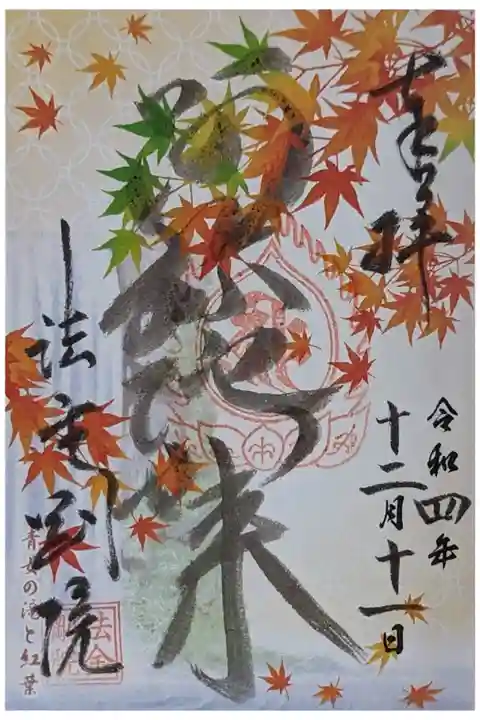 奉拝
令和四年
十二月十一日
法金剛院
青女の滝と紅葉
法金
剛院